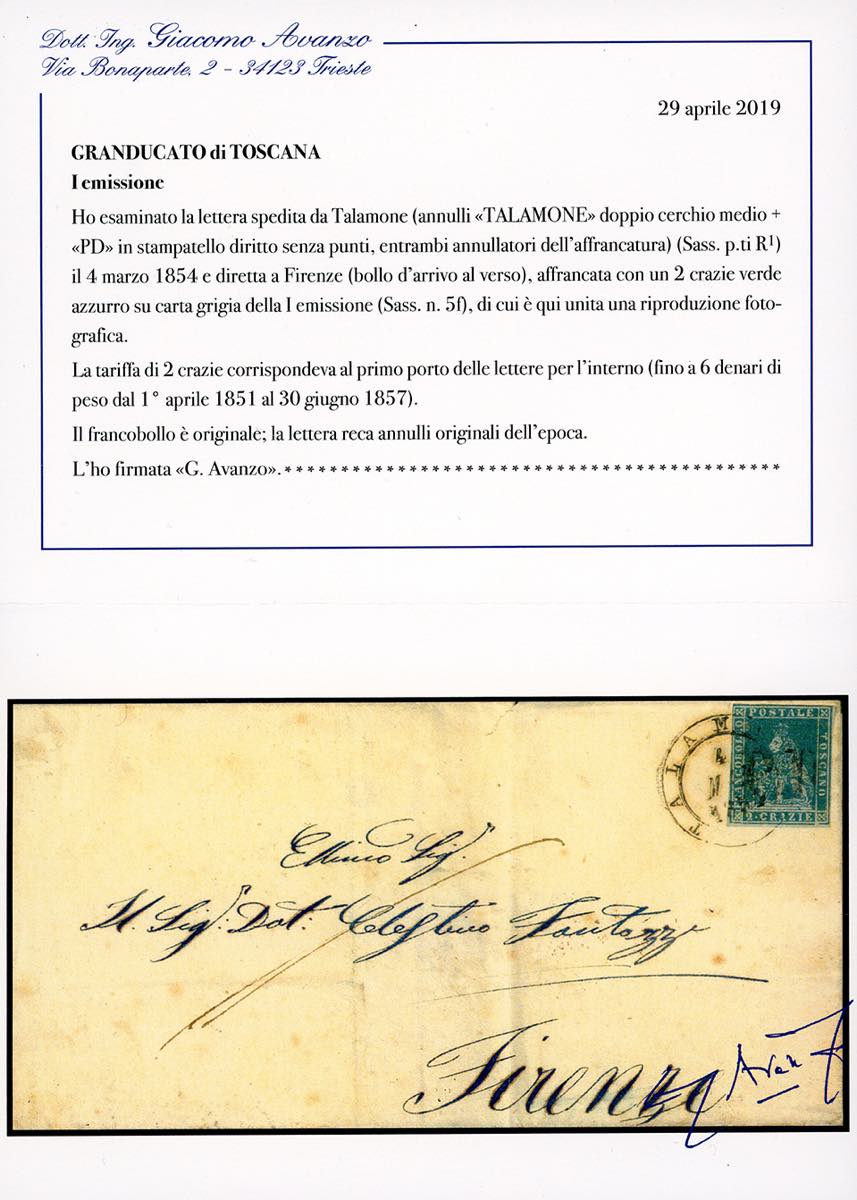 Dott. Ing. Giacomo Avanzo
Via Bonaparte, 2 - 34123 Trieste
29 aprile 2019
GRANDUCATO di TOSCANA
I emissione
Ho esaminato la lettera spedita da Talamone (annulli «TALAMONE» doppio cerchio medio +
«PD» in stampatello diritto senza punti, entrambi annullatori dell'affrancatura) (Sass. p.ti R¹)
il 4 marzo 1854 e diretta a Firenze (bollo d'arrivo al verso), affrancata con un 2 crazie verde
azzurro su carta grigia della I emissione (Sass. n. 5f), di cui è qui unita una riproduzione foto-
grafica.
La tariffa di 2 crazie corrispondeva al primo porto delle lettere per l'interno (fino a 6 denari di
peso dal 1° aprile 1851 al 30 giugno 1857).
Il francobollo è originale; la lettera reca annulli originali dell'epoca.
L'ho firmata «G. Avanzo». * * * * * * * * * * * * * * * * * * * * * * * * * * * * * * * * * * * * * * * * * * * *
TALAM
4
FRANCOBOLLO
POSTALE
TOSCANO
2·CRAZIE
Sig.
Il Sig. Dot. Celestino Fantozzi
Firenze